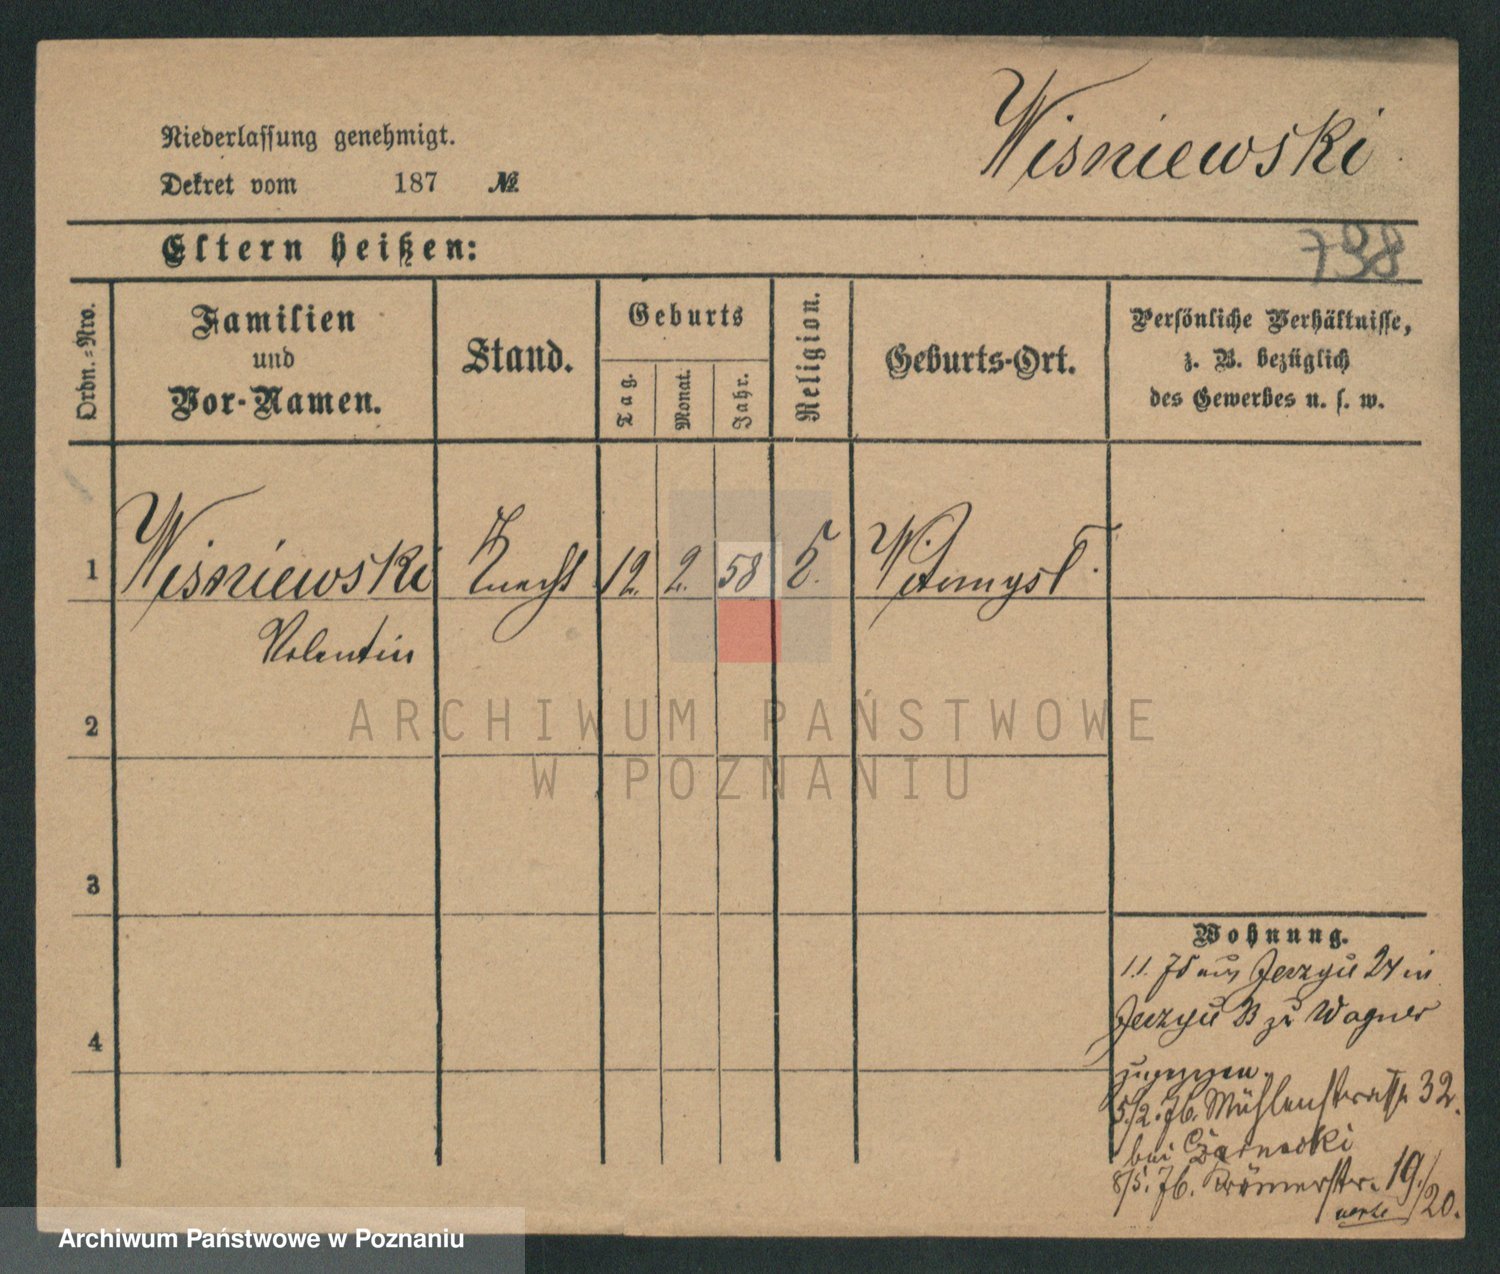 Wisniewski
Niederlassung genehmigt.
Dekret vom 187 №
Eltern heißen:
798
Ordn.-Nro.
Familien
und
Vor-Namen.
Stand.
Geburts
Tag.
Monat.
Jahr.
Religion.
Geburts-Ort.
Persönliche Verhältnisse,
z. B. bezüglich
des Gewerbes u. s. w.
1 Wisniewski Knecht 12. 2. 58
Valentin
2
ARCHIWUM PAŃSTWOWE
W POZNANIU
3
Wohnung.
1.1. 75 aus Jerzyce 24 in
Jerzyce 33 zu Wagner
4
zugezogen.
5/2. 76. Mühlenstrasse 32.
bei Czarnecki
8/5. 76. 19/20.
Archiwum Państwowe w Poznaniu